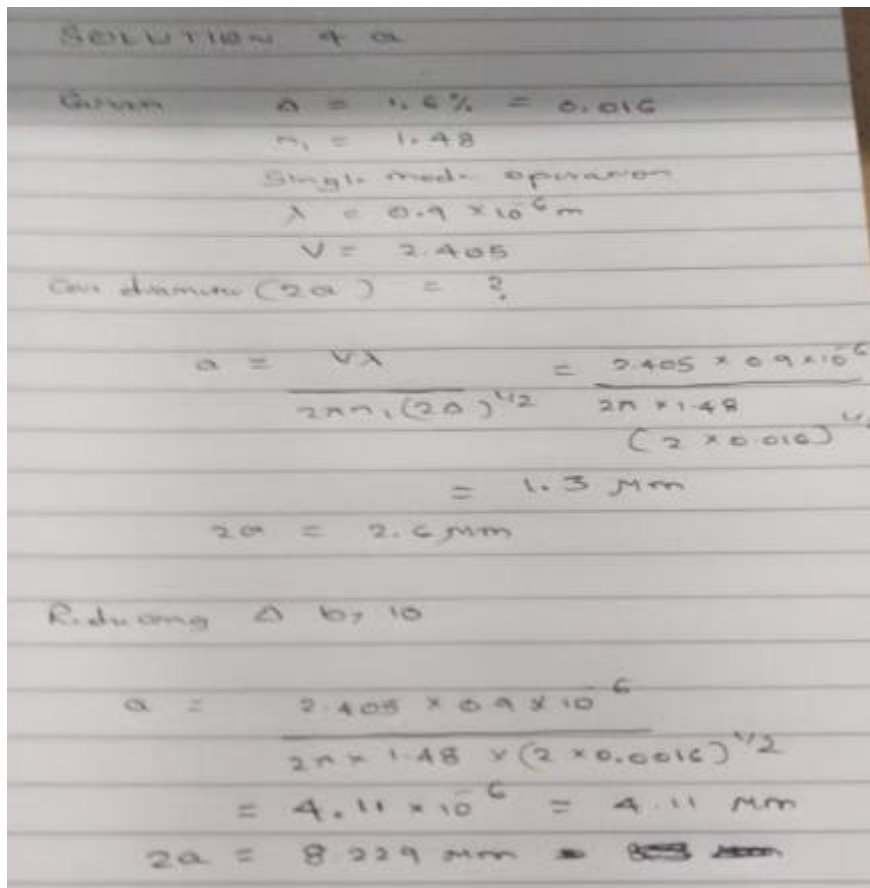 SOLUTION 4 a
Given Δ = 1.6% = 0.016
n₁ = 1.48
Single mode operation
λ = 0.9 × 10⁻⁶ m
V = 2.405
Core diameter (2a) = ?
a = Vλ / 2πn₁(2Δ)^1/2 = 2.405 × 0.9 × 10⁻⁶ / 2π × 1.48 (2 × 0.016)^1/2
= 1.3 μm
2a = 2.6 μm
Reducing Δ by 10
a = 2.405 × 0.9 × 10⁻⁶ / 2π × 1.48 × (2 × 0.0016)^1/2
= 4.11 × 10⁻⁶ = 4.11 μm
2a = 8.229 μm